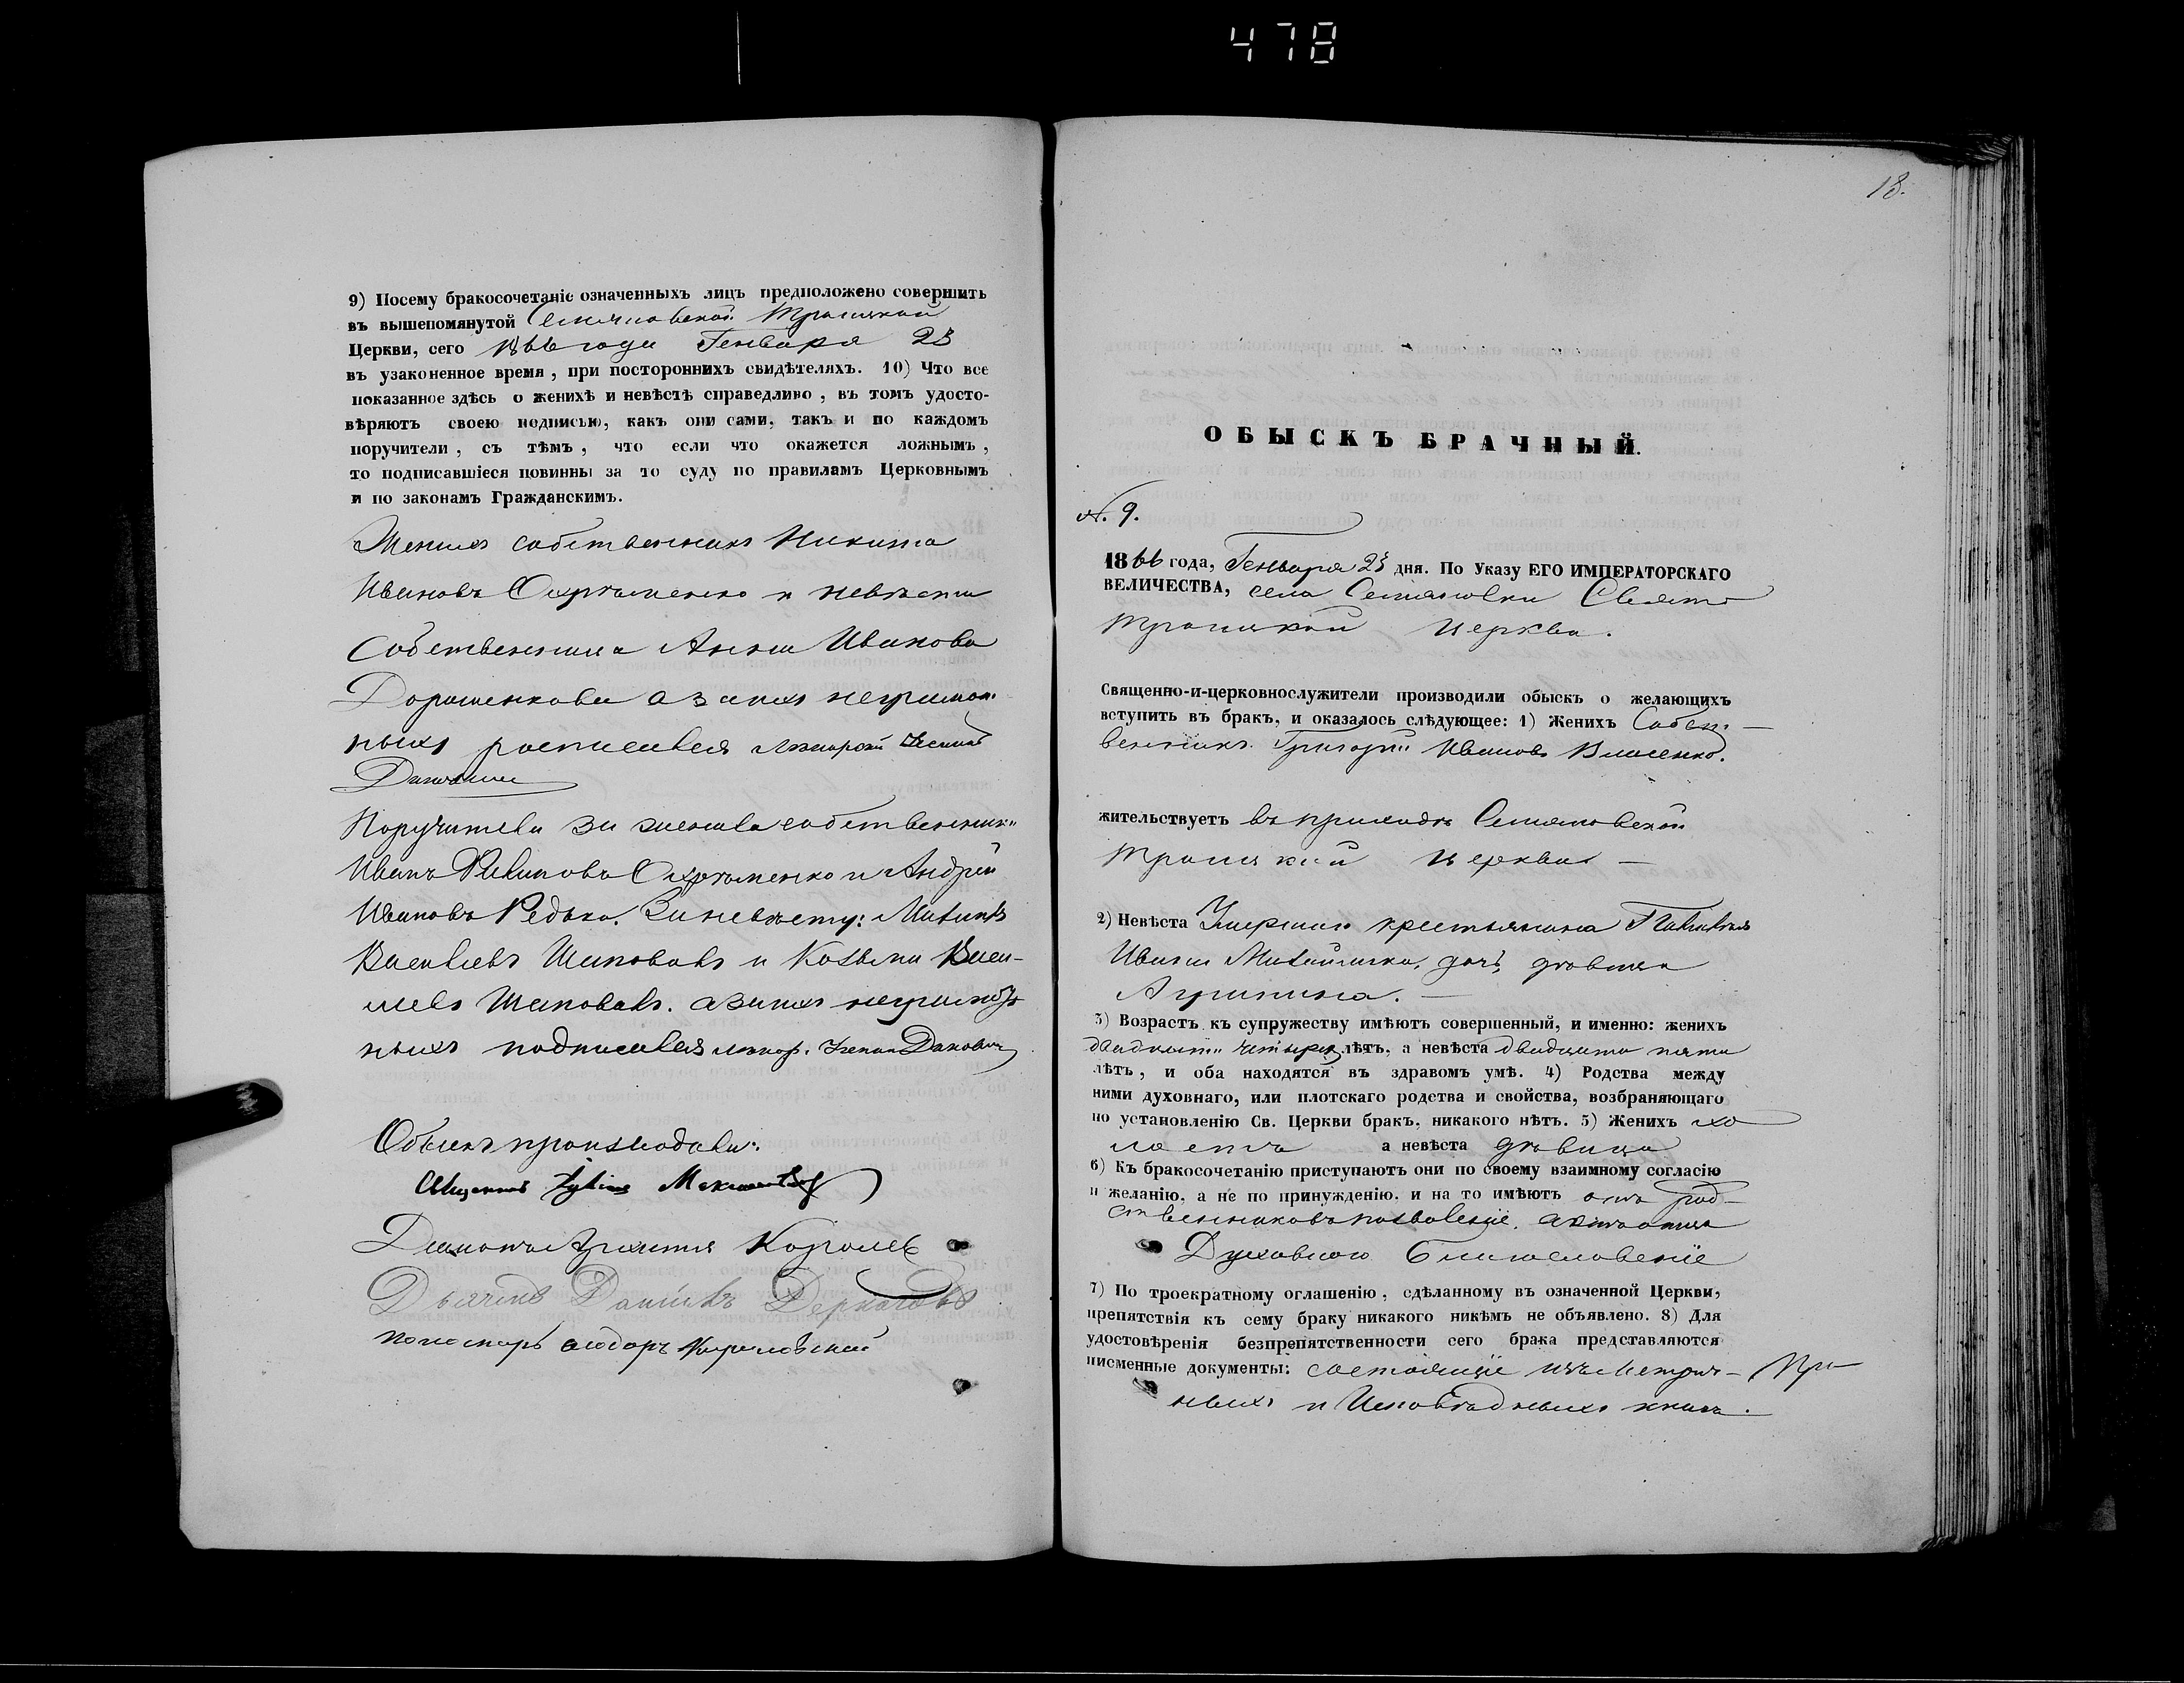 478
9) Посему бракосочетаніе означенныхъ лицъ предположено совершить
въ вышепомянутой Семяновской Троицкой
Церкви, сего 1866 года Генваря 23
въ узаконенное время, при постороннихъ свидѣтеляхъ. 10) Что все
показанное здѣсь о женихѣ и невѣстѣ справедливо, въ томъ удосто-
вѣряютъ своею подписью, какъ они сами, такъ и по каждомъ
поручители, съ тѣмъ, что если что окажется ложнымъ,
то подписавшіеся повинны за то суду по правиламъ Церковнымъ
и по законамъ Гражданскимъ.
Женихъ собственникъ Никита
Ивановъ Охрѣменко и невѣста
Собственница Анна Иванова
Дорошенкова а за нихъ неграмот-
ныхъ росписался
Поручители за жениха собственники
Иванъ Филиповъ Охрѣменко и Андрей
Ивановъ Редька. За невѣсту: Михаилъ
Васильевъ Шаповалъ и Козьма Васи-
льевъ Шаповалъ. а за нихъ неграмот-
ныхъ подписался
Обыскъ производили:
Священникъ
Діаконъ Королев
Дьячекъ Даніилъ Деркачовъ
пономарь Ѳеодоръ
18.
ОБЫСКЪ БРАЧНЫЙ.
N. 9.
1866 года, Генваря 23 дня. По Указу ЕГО ИМПЕРАТОРСКАГО
ВЕЛИЧЕСТВА, села Семяновки Свято
Троицкой Церкви.
Священно-и-церковнослужители производили обыскъ о желающихъ
вступить въ бракъ, и оказалось слѣдующее: 1) Женихъ Собст-
венникъ Григорій Ивановъ Власенко.
жительствуетъ въ приходѣ Семяновской
Троицкой Церкви —
2) Невѣста Умершаго крестьянина
Ивана Михайленка, дочь, дѣвица
Агрипина. —
3) Возрастъ къ супружеству имѣютъ совершенный, и именно: женихъ
двадцати четырехъ лѣтъ, а невѣста двадцати пяти
лѣтъ, и оба находятся въ здравомъ умѣ. 4) Родства между
ними духовнаго, или плотскаго родства и свойства, возбраняющаго
по установленію Св. Церкви бракъ, никакого нѣтъ. 5) Женихъ хо
лостъ а невѣста дѣвица
6) Къ бракосочетанію приступаютъ они по своему взаимному согласію
и желанію, а не по принужденію, и на то имѣютъ отъ род-
ственниковъ позволеніе, а отъ отца
Духовнаго Благословеніе
7) По троекратному оглашенію, сдѣланному въ означенной Церкви,
препятствія къ сему браку никакого никѣмъ не объявлено. 8) Для
удостовѣренія безпрепятственности сего брака представляются
писменные документы: состоящіе изъ Метрич- При-
ныхъ и Исповѣдныхъ книгъ.